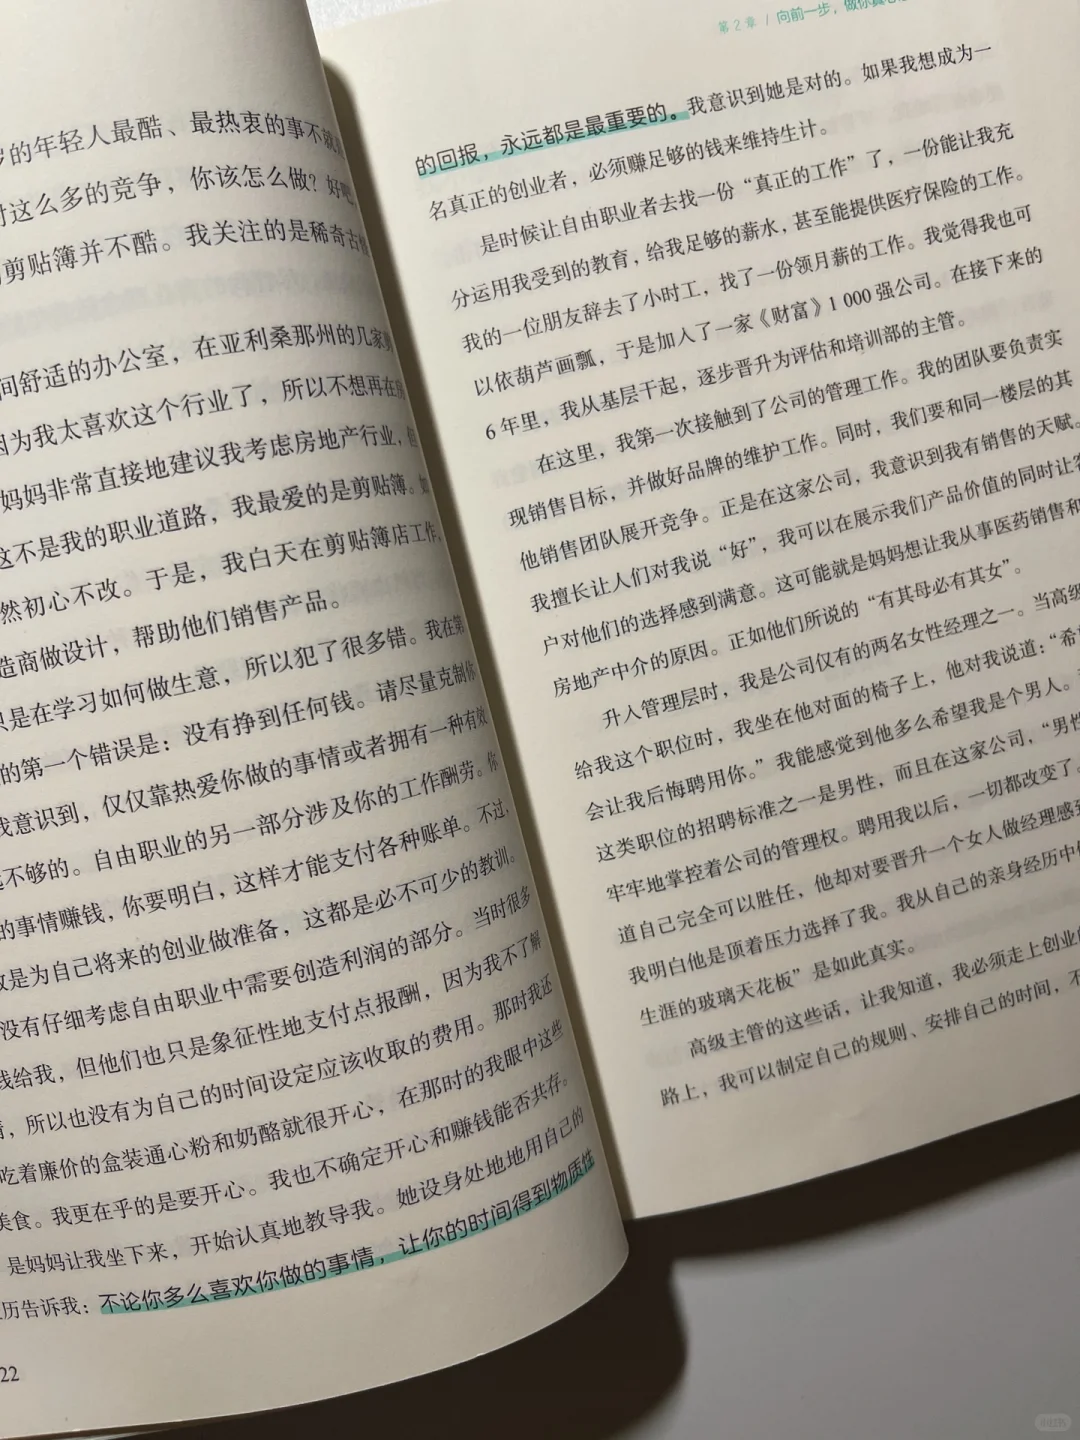 岁的年轻人最酷、最热衷的事不就
对这么多的竞争，你该怎么做？好吧
剪贴簿并不酷。我关注的是稀奇古
间舒适的办公室，在亚利桑那州的几家
因为我太喜欢这个行业了，所以不想再在
妈妈非常直接地建议我考虑房地产行业，但
这不是我的职业道路，我最爱的是剪贴簿。如
然初心不改。于是，我白天在剪贴簿店工作，
造商做设计，帮助他们销售产品。
只是在学习如何做生意，所以犯了很多错。我在第
的第一个错误是：没有挣到任何钱。请尽量克制你
我意识到，仅仅靠热爱你做的事情或者拥有一种有效
远不够的。自由职业的另一部分涉及你的工作酬劳。你
的事情赚钱，你要明白，这样才能支付各种账单。不过，
做是为自己将来的创业做准备，这都是必不可少的教训。
没有仔细考虑自由职业中需要创造利润的部分。当时很多
钱给我，但他们也只是象征性地支付点报酬，因为我不了解
情，所以也没有为自己的时间设定应该收取的费用。那时我还
吃着廉价的盒装通心粉和奶酪就很开心，在那时的我眼中这些
美食。我更在乎的是要开心。我也不确定开心和赚钱能否共存。
是妈妈让我坐下来，开始认真地教导我。她设身处地地用自己的
历告诉我：不论你多么喜欢你做的事情，让你的时间得到物质性
22
第2章 / 向前一步，做你真心
的回报，永远都是最重要的。我意识到她是对的。如果我想成为一
名真正的创业者，必须赚足够的钱来维持生计。
是时候让自由职业者去找一份“真正的工作”了，一份能让我充
分运用我受到的教育，给我足够的薪水，甚至能提供医疗保险的工作。
我的一位朋友辞去了小时工，找了一份领月薪的工作。我觉得我也可
以依葫芦画瓢，于是加入了一家《财富》1 000强公司。在接下来的
6年里，我从基层干起，逐步晋升为评估和培训部的主管。
在这里，我第一次接触到了公司的管理工作。我的团队要负责实
现销售目标，并做好品牌的维护工作。同时，我们要和同一楼层的其
他销售团队展开竞争。正是在这家公司，我意识到我有销售的天赋。
我擅长让人们对我说“好”，我可以在展示我们产品价值的同时让客
户对他们的选择感到满意。这可能就是妈妈想让我从事医药销售和
房地产中介的原因。正如他们所说的“有其母必有其女”。
升入管理层时，我是公司仅有的两名女性经理之一。当高级
给我这个职位时，我坐在他对面的椅子上，他对我说道：“希望
会让我后悔聘用你。”我能感觉到他多么希望我是个男人。
这类职位的招聘标准之一是男性，而且在这家公司，“男性
牢牢地掌控着公司的管理权。聘用我以后，一切都改变了。
道自己完全可以胜任，他却对要晋升一个女人做经理感到
我明白他是顶着压力选择了我。我从自己的亲身经历中
生涯的玻璃天花板”是如此真实。
高级主管的这些话，让我知道，我必须走上创业的
路上，我可以制定自己的规则、安排自己的时间，不